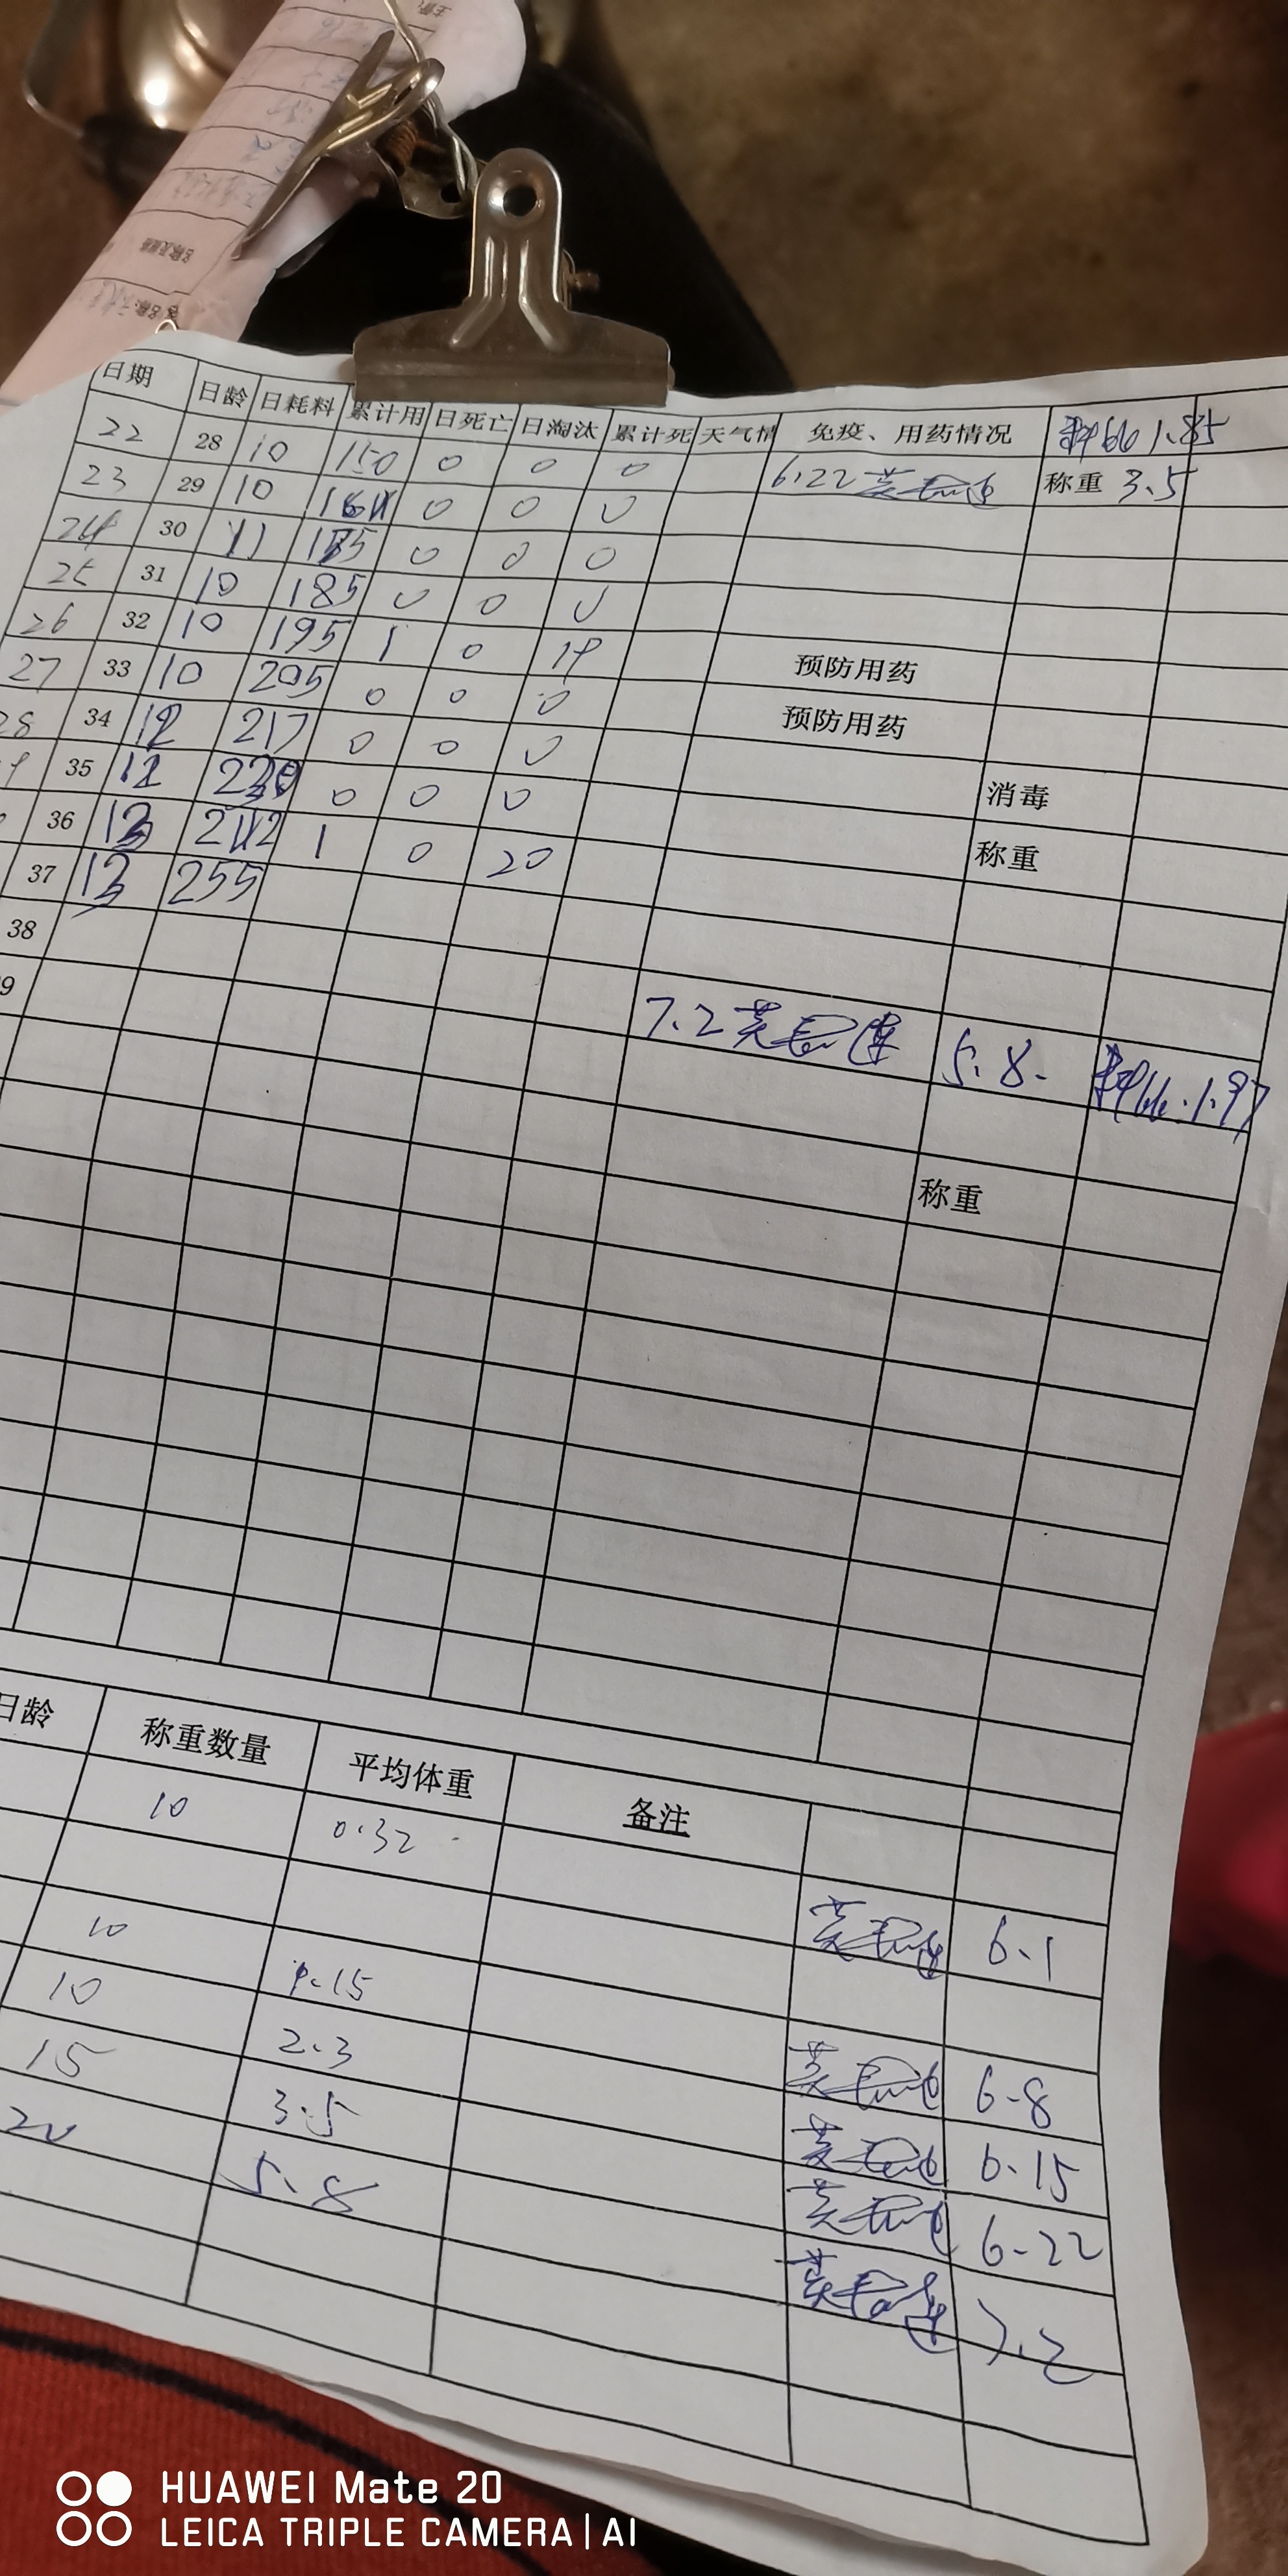 日期 日龄 日耗料 累计用 日死亡 日淘汰 累计死 天气情 免疫、用药情况 料比 1.85
22 28 10 150 0 0 0 6.22 称重 3.5
23 29 10 0 0 0
24 30 11 0 0 0
25 31 10 185 0 0 0
26 32 10 195 1 0 19 预防用药
27 33 10 205 0 0 0 预防用药
28 34 12 217 0 0 0
35 12 230 0 0 0 消毒
36 13 242 1 0 20 称重
37 13 255
38
9
7.2 5.8. 料比.1.97
称重
日龄 称重数量 平均体重 备注
10 0.32
6.1
10 1.15
6-8
10 2.3
6.15
15 3.5
6-22
20 5.8
7.2
HUAWEI Mate 20
LEICA TRIPLE CAMERA | AI